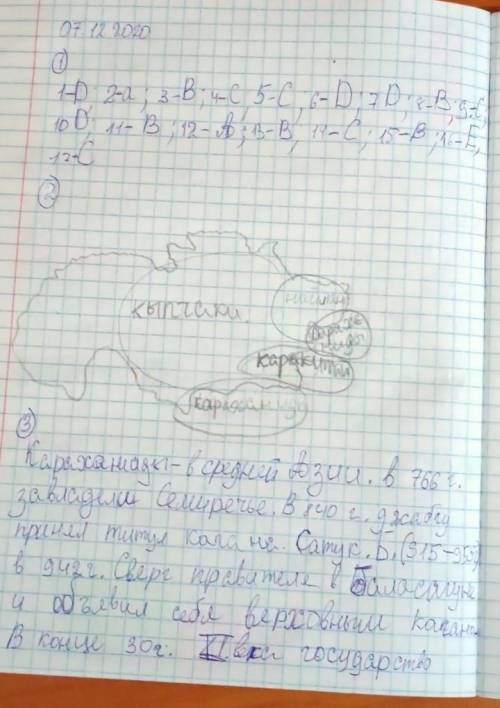 07.12.2020
①
1-D; 2-a; 3-B; 4-C, 5-C, 6-D; 7D; 8-B; 9-C,
10D, 11-B; 12-A; 13-B, 14-C; 15-B; 16-E,
17-C
②
кыпчаки.
найман
карахо
ниды
каракитаи
караханиды
③
Караханиды - в средней Азии. в 766 г.
завладели Семиречье. В 840 г. джабгу
принял титул кагана. Сатук. Б. (915-955)
в 942г. Сверг правителя в Баласагуне
и объявил себя верховным каганом
В конце 30г. века государство